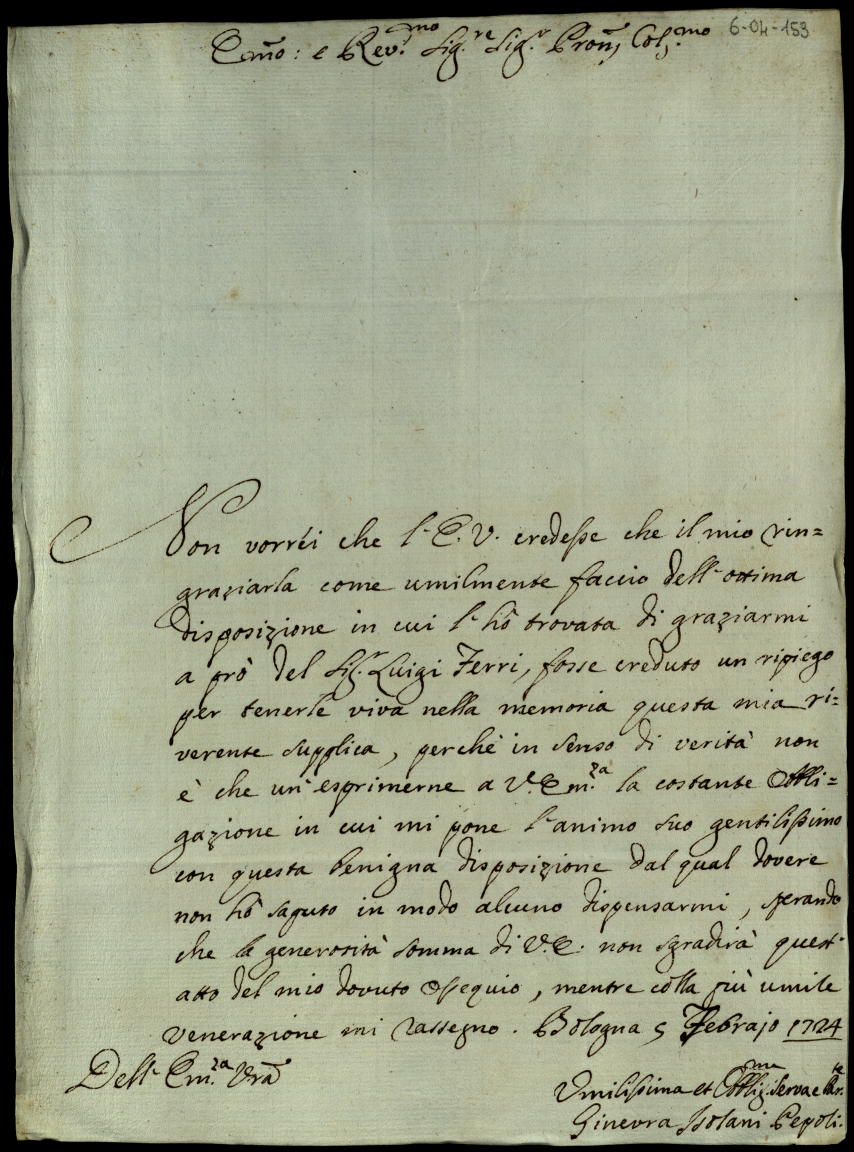 6-04-153
Emo: e Rev.mo Sig.re Sig.r Pron, Col.mo
Non vorrei che l'E. V. credesse che il mio rin=
graziarla come umilmente faccio dell'ottima
disposizione in cui l'hò trovata di graziarmi
a prò del Sig.r Luigi Ferri, fosse creduto un ripiego
per tenerle viva nella memoria questa mia ri=
verente supplica, perchè in senso di verità non
è che un'esprimerne a V. Em.za la costante obbli=
gazione in cui mi pone l'animo suo gentilissimo
con questa benigna disposizione dal qual dovere
non hò saputo in modo alcuno dispensarmi, sperando
che la generosità somma di V. E. non sgradirà quest'
atto del mio dovuto ossequio, mentre colla più umile
venerazione mi rassegno. Bologna 5 Febrajo 1724
Dell' Em.za Vra
Umilissima et Obblig.ma Serva e
Ginevra Isolani Pepoli.